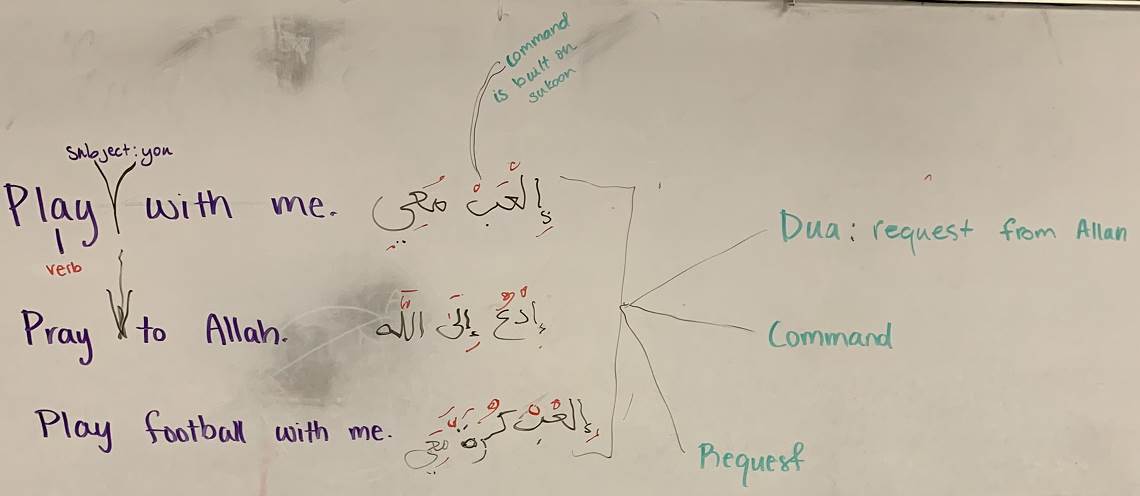 command
is built on
sukoon
subject: you
Play with me. إِلْعَبْ مَعِي
verb
Dua: request from Allah
Pray to Allah. إِدْعُ إِلَى اللَّه
Command
Play football with me. إِلْعَبْ كُرَةً مَعِي
Request